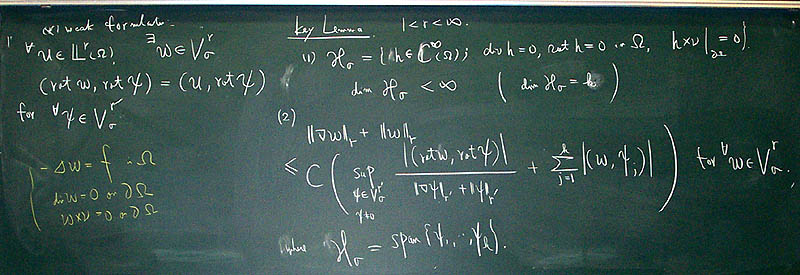 (*) weak formulation
∀u ∈ 𝕃^r(Ω), ∃w ∈ V_σ^r
(rot w, rot ψ) = (u, rot ψ)
for ∀ψ ∈ V_σ^r
-Δw = f in Ω
div w = 0 on ∂Ω
w×ν = 0 on ∂Ω
Key Lemma. 1<r<∞.
(1) ℋ_σ = {h ∈ ℂ^∞(Ω); div h = 0, rot h = 0 in Ω, h×ν|_∂Ω = 0}.
dim ℋ_σ < ∞ (dim ℋ_σ = )
(2) ‖∇w‖_r + ‖w‖_r
≤ C ( sup_{ψ∈V_σ^{r'}, ψ≠0} |(rot w, rot ψ)| / (‖∇ψ‖_{r'} + ‖ψ‖_{r'}) + Σ_{j=1}^{k} |(w, ψ_j)| ) for ∀w ∈ V_σ^r.
where ℋ_σ = span{ψ_1, …, ψ_k}.